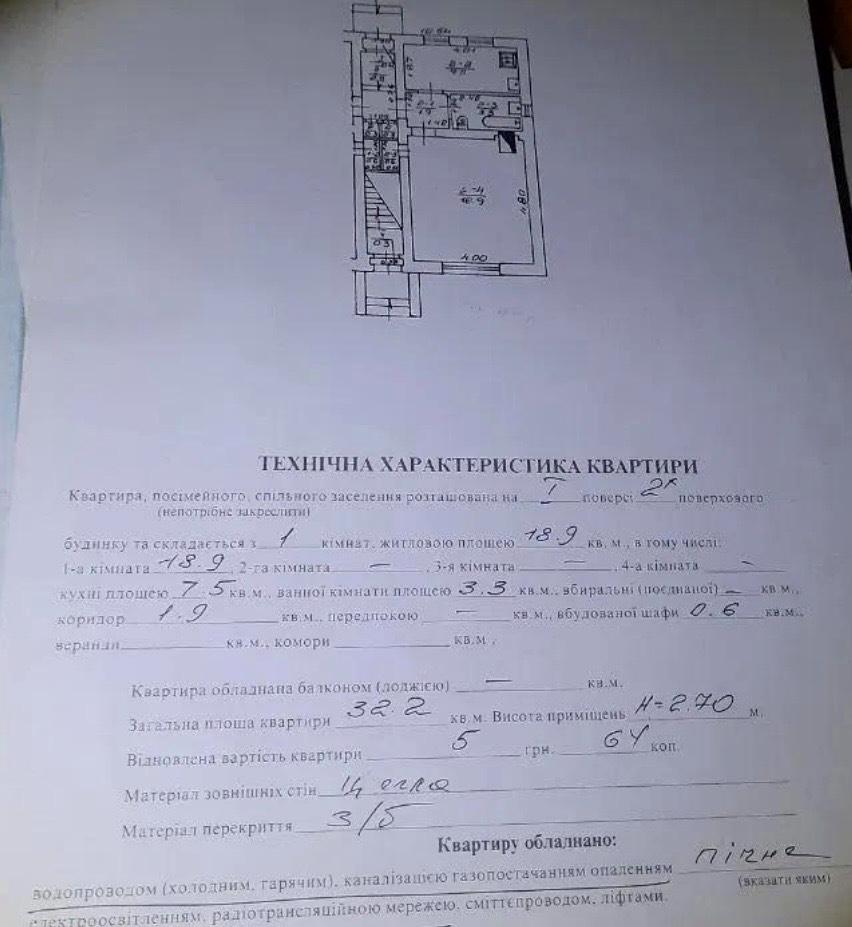 4.00
4.80
ТЕХНІЧНА ХАРАКТЕРИСТИКА КВАРТИРИ
Квартира, посімейного, спільного заселення розташована на I поверсі 2х поверхового
(непотрібне закреслити)
будинку та складається з 1 кімнат, житловою площею 18.9 кв. м., в тому числі:
1-а кімната 18.9, 2-га кімната —, 3-я кімната —, 4-а кімната —
кухні площею 7.5 кв.м., ванної кімнати площею 3.3 кв.м., вбиральні (поєднаної) — кв м.,
коридор 1.9 кв.м., передпокою — кв.м., вбудованої шафи 0.6 кв.м.,
веранди кв.м., комори кв.м.
Квартира обладнана балконом (лоджією) — кв.м.
Загальна площа квартири 32.2 кв.м. Висота приміщень H=2.70 м.
Відновлена вартість квартири 5 грн. 64 коп.
Матеріал зовнішніх стін цегла
Матеріал перекриття З/Б
Квартиру обладнано:
водопроводом (холодним, гарячим), каналізацією газопостачанням опаленням пічне
(вказати яким)
електроосвітленням, радіотрансляційною мережею, сміттєпроводом, ліфтами.